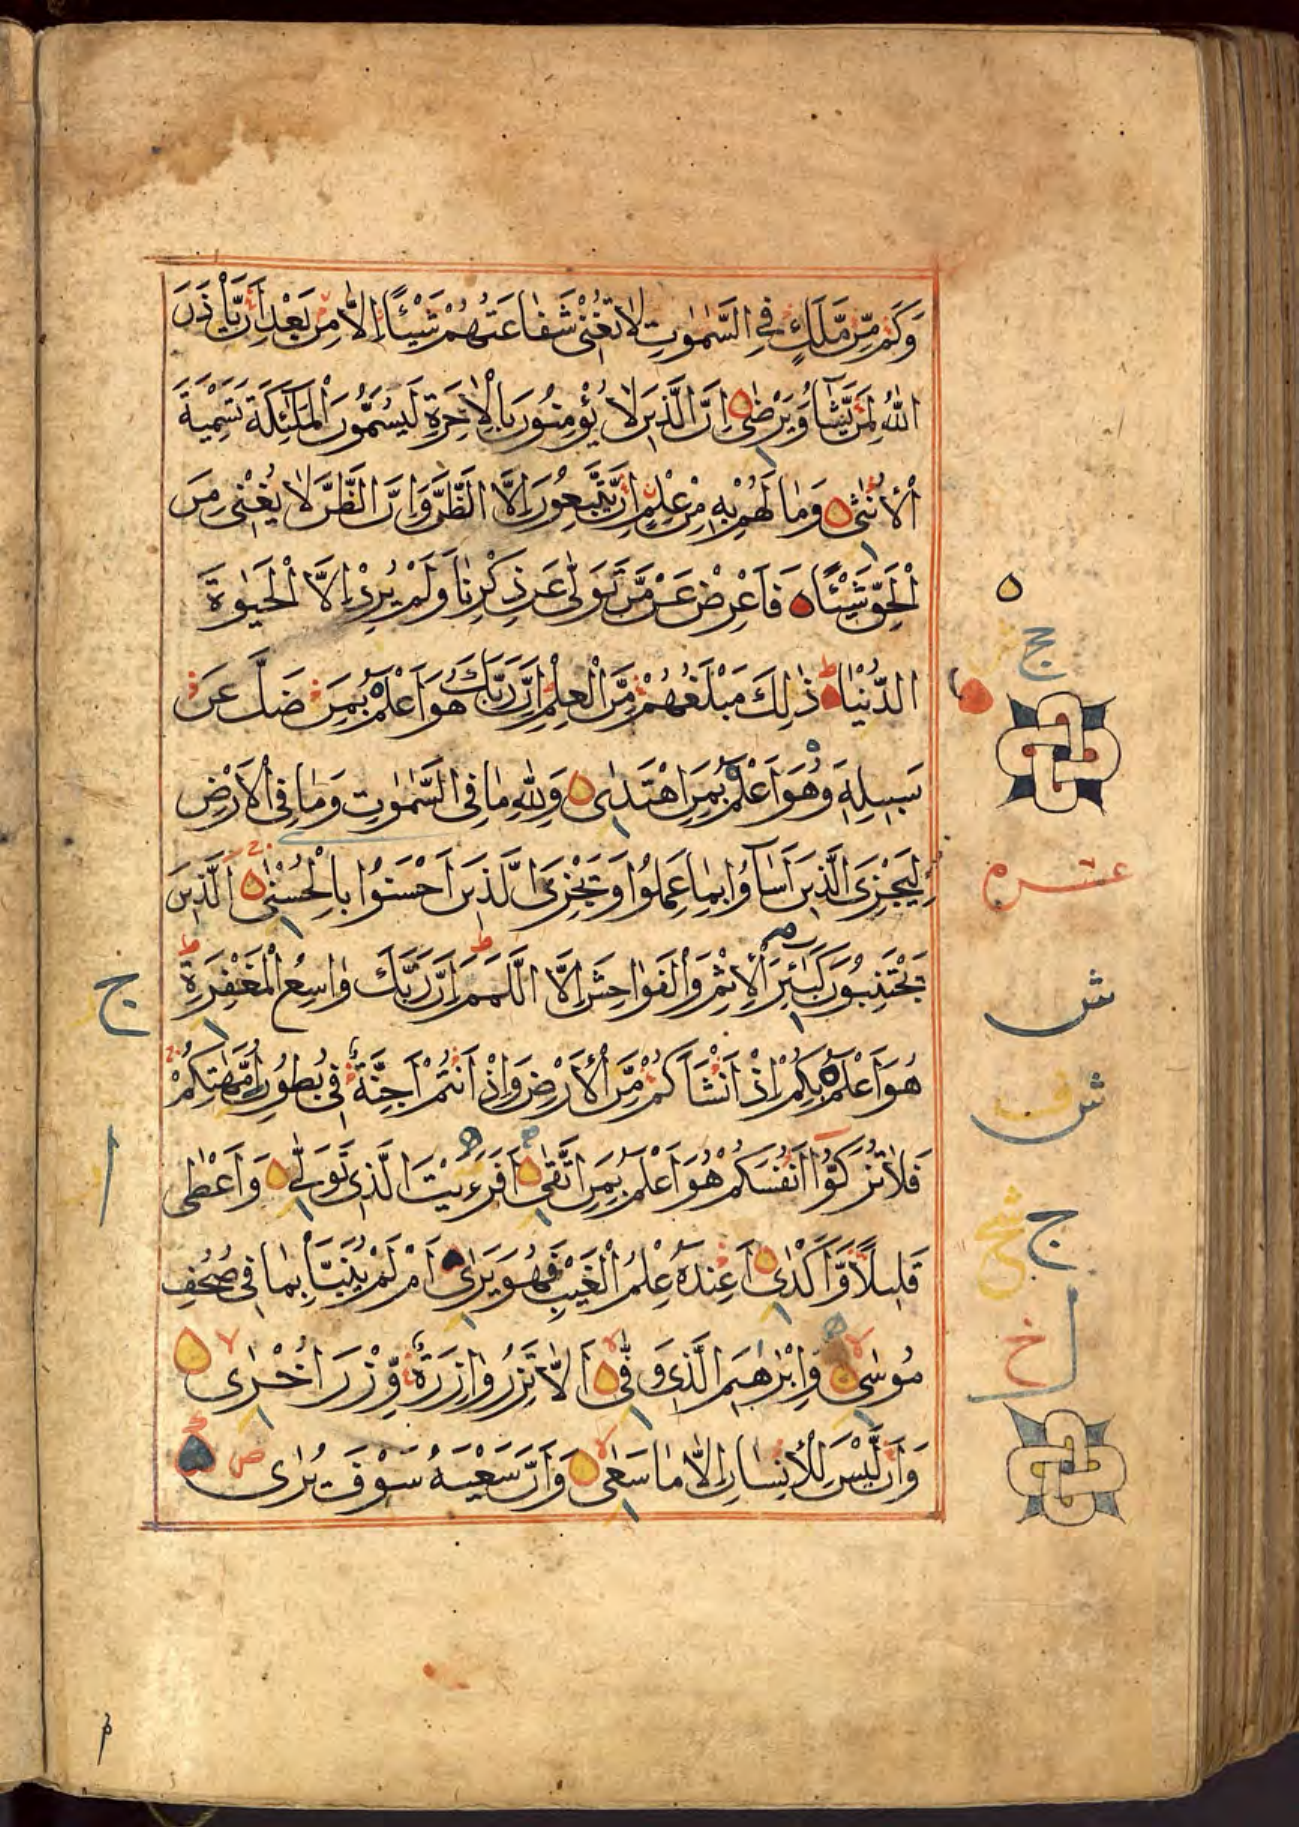 وَكَمْ مِّن مَّلَكٍ فِي السَّمٰوٰتِ لَا تُغْنِي شَفَاعَتُهُمْ شَيْئًا اِلَّا مِنْ بَعْدِ اَنْ يَّأْذَنَ
اللّٰهُ لِمَنْ يَّشَآءُ وَيَرْضٰى اِنَّ الَّذِينَ لَا يُؤْمِنُونَ بِالْاٰخِرَةِ لَيُسَمُّونَ الْمَلٰٓئِكَةَ تَسْمِيَةَ
الْاُنْثٰى وَمَا لَهُمْ بِهِ مِنْ عِلْمٍ اِنْ يَّتَّبِعُونَ اِلَّا الظَّنَّ وَاِنَّ الظَّنَّ لَا يُغْنِي مِنَ
الْحَقِّ شَيْئًا فَاَعْرِضْ عَنْ مَّنْ تَوَلّٰى عَنْ ذِكْرِنَا وَلَمْ يُرِدْ اِلَّا الْحَيٰوةَ
الدُّنْيَا ذٰلِكَ مَبْلَغُهُمْ مِّنَ الْعِلْمِ اِنَّ رَبَّكَ هُوَ اَعْلَمُ بِمَنْ ضَلَّ عَنْ
سَبِيلِهِ وَهُوَ اَعْلَمُ بِمَنِ اهْتَدٰى وَلِلّٰهِ مَا فِي السَّمٰوٰتِ وَمَا فِي الْاَرْضِ
لِيَجْزِيَ الَّذِينَ اَسَآءُوا بِمَا عَمِلُوا وَيَجْزِيَ الَّذِينَ اَحْسَنُوا بِالْحُسْنٰى الَّذِينَ
يَجْتَنِبُونَ كَبٰٓئِرَ الْاِثْمِ وَالْفَوَاحِشَ اِلَّا اللَّمَمَ اِنَّ رَبَّكَ وَاسِعُ الْمَغْفِرَةِ
هُوَ اَعْلَمُ بِكُمْ اِذْ اَنْشَاَكُمْ مِّنَ الْاَرْضِ وَاِذْ اَنْتُمْ اَجِنَّةٌ فِي بُطُونِ اُمَّهٰتِكُمْ
فَلَا تُزَكُّوٓا اَنْفُسَكُمْ هُوَ اَعْلَمُ بِمَنِ اتَّقٰى اَفَرَءَيْتَ الَّذِي تَوَلّٰى وَاَعْطٰى
قَلِيلًا وَّاَكْدٰى اَعِنْدَهُ عِلْمُ الْغَيْبِ فَهُوَ يَرٰى اَمْ لَمْ يُنَبَّأْ بِمَا فِي صُحُفِ
مُوسٰى وَاِبْرٰهِيمَ الَّذِي وَفّٰى اَلَّا تَزِرُ وَازِرَةٌ وِّزْرَ اُخْرٰى
وَاَنْ لَّيْسَ لِلْاِنْسَانِ اِلَّا مَا سَعٰى وَاَنَّ سَعْيَهُ سَوْفَ يُرٰى
عشره
ش
ش
ج
ج
خ